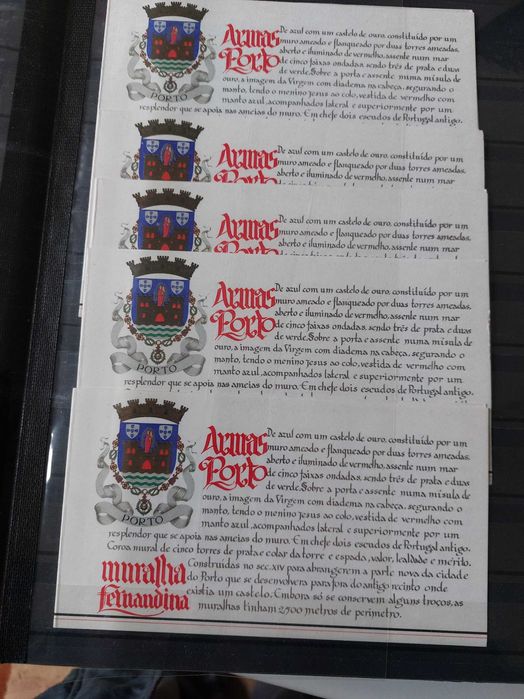 PORTO
Armas
Porto
De azul com um castelo de ouro, constituído por um
muro ameado e flanqueado por duas torres ameadas,
aberto e iluminado de vermelho, assente num mar
de cinco faixas ondadas, sendo três de prata e duas
de verde. Sobre a porta e assente numa mísula de
ouro, a imagem da Virgem com diadema na cabeça, segurando o
manto, tendo o menino Jesus ao colo, vestida de vermelho com
manto azul, acompanhados lateral e superiormente por um
resplendor que se apoia nas ameias do muro. Em chefe dois escudos de Portugal antigo.
Armas
Porto
De azul com um castelo de ouro, constituído por um
muro ameado e flanqueado por duas torres ameadas,
aberto e iluminado de vermelho, assente num mar
Armas
Porto
De azul com um castelo de ouro, constituído por um
muro ameado e flanqueado por duas torres ameadas,
aberto e iluminado de vermelho, assente num mar
PORTO
Armas
Porto
De azul com um castelo de ouro, constituído por um
muro ameado e flanqueado por duas torres ameadas,
aberto e iluminado de vermelho, assente num mar
de cinco faixas ondadas, sendo três de prata e duas
de verde. Sobre a porta e assente numa mísula de
ouro, a imagem da Virgem com diadema na cabeça, segurando o
manto, tendo o menino Jesus ao colo, vestida de vermelho com
manto azul, acompanhados lateral e superiormente por um
resplendor que se apoia nas ameias do muro. Em chefe dois escudos de Portugal antigo.
PORTO
Armas
Porto
De azul com um castelo de ouro, constituído por um
muro ameado e flanqueado por duas torres ameadas,
aberto e iluminado de vermelho, assente num mar
de cinco faixas ondadas, sendo três de prata e duas
de verde. Sobre a porta e assente numa mísula de
ouro, a imagem da Virgem com diadema na cabeça, segurando o
manto, tendo o menino Jesus ao colo, vestida de vermelho com
manto azul, acompanhados lateral e superiormente por um
resplendor que se apoia nas ameias do muro. Em chefe dois escudos de Portugal antigo.
Coroa mural de cinco torres de prata e colar da torre e espada, valor, lealdade e mérito.
muralha
fernandina
Construídas no sec. XIV para abrangerem a parte nova da cidade
do Porto que se desenvolvera para fora do antigo recinto onde
existia um castelo. Embora só se conservem alguns troços, as
muralhas tinham 2500 metros de perímetro.